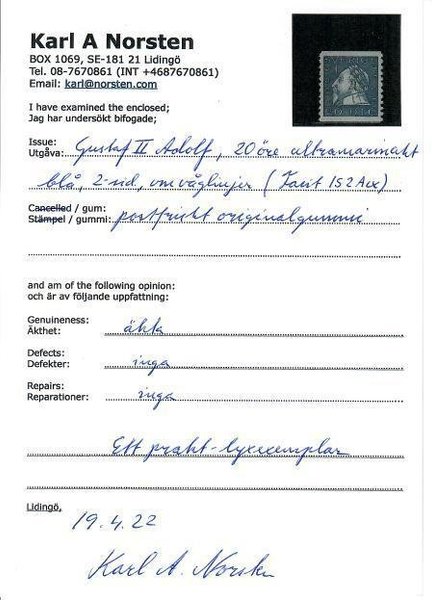 Karl A Norsten
BOX 1069, SE-181 21 Lidingö
Tel. 08-7670861 (INT +4687670861)
Email: karl@norsten.com
I have examined the enclosed;
Jag har undersökt bifogade;
Issue:
Utgåva: Gustaf II Adolf, 20 öre ultramarinakt
blå, 2-sid, omv våglinjer (Facit 152Acx)
Cancelled / gum:
Stämpel / gummi: postfriskt originalgummi
and am of the following opinion:
och är av följande uppfattning:
Genuineness:
Äkthet: äkta
Defects:
Defekter: inga
Repairs:
Reparationer: inga
Ett prakt-lyxexemplar
Lidingö,
19.4.22
Karl A. Norsten